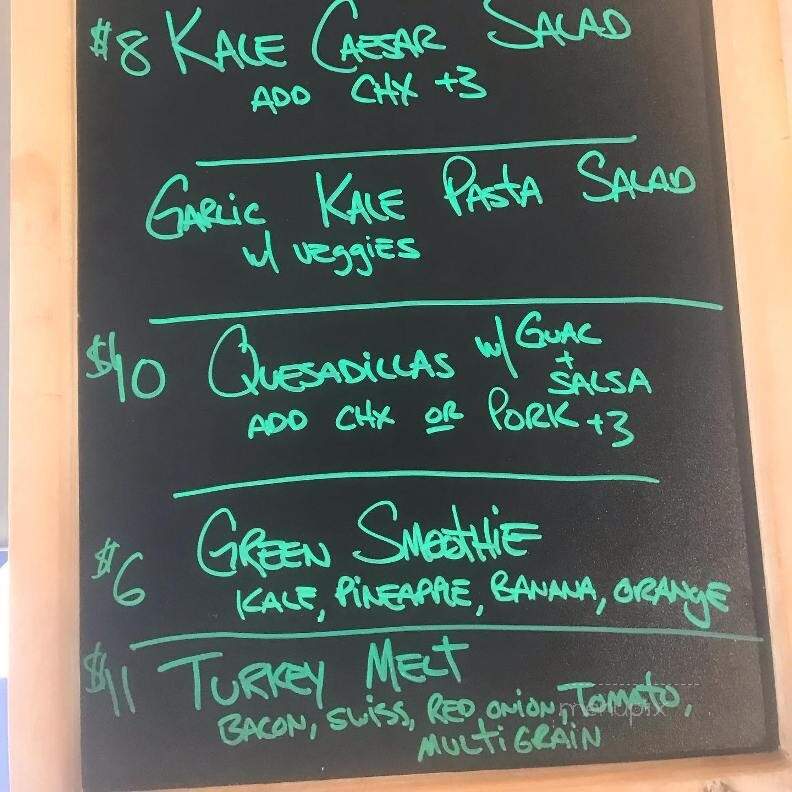 $8 KALE CAESAR SALAD
ADD CHX +3
GARLIC KALE PASTA SALAD
w/ VEGGIES
$10 QUESADILLAS w/ GUAC
+
SALSA
ADD CHX OR PORK +3
$6 GREEN SMOOTHIE
KALE, PINEAPPLE, BANANA, ORANGE
$11 TURKEY MELT
BACON, SWISS, RED ONION, TOMATO,
MULTIGRAIN
menupix